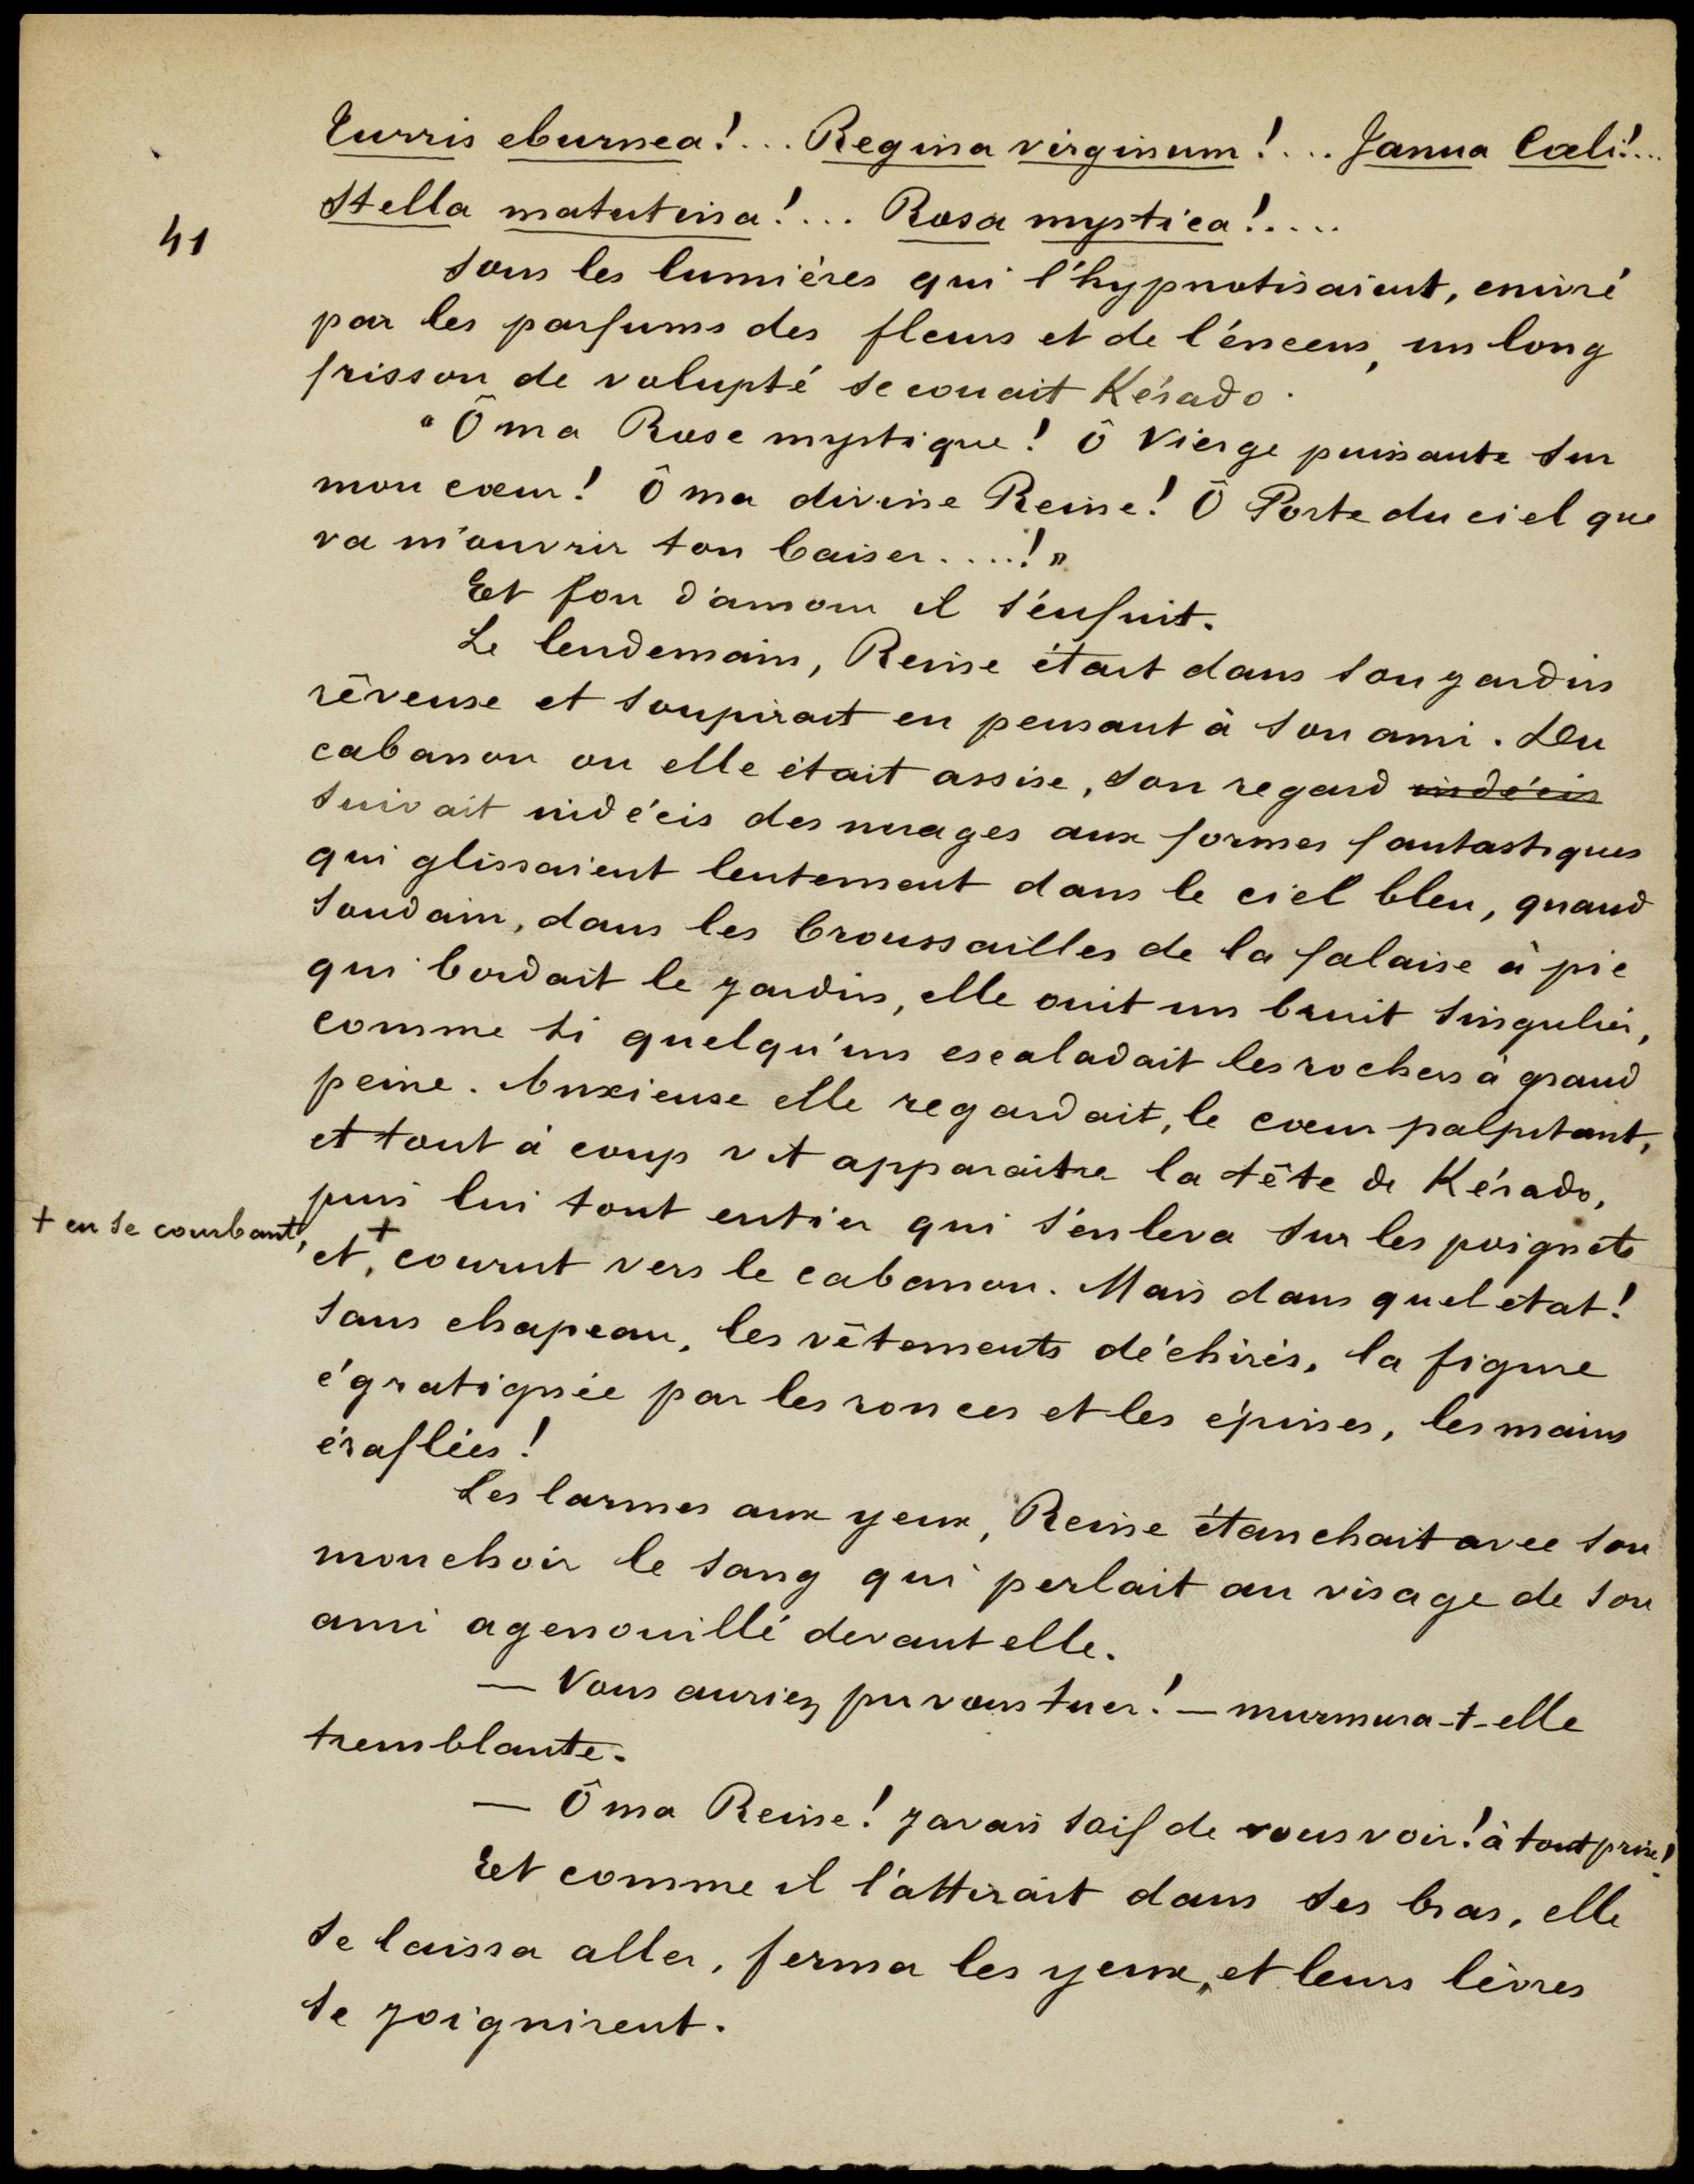 Turris eburnea!... Regina virginum!... Janua Cœli!...
Stella matutina!... Rosa mystica!.....
41
Sous les lumières qui l'hypnotisaient, enivré
par les parfums des fleurs et de l'encens, un long
frisson de volupté secouait Késado.
"Ô ma Rose mystique! Ô Vierge puissante sur
mon cœur! Ô ma divine Reine! Ô Porte du ciel que
va m'ouvrir ton baiser.....!"
Et fou d'amour il s'enfuit.
Le lendemain, Reine était dans son jardin
rêveuse et soupirait en pensant à son ami. Du
cabanon ou elle était assise, son regard indécis
suivait indécis des nuages aux formes fantastiques
qui glissaient lentement dans le ciel bleu, quand
soudain, dans les broussailles de la falaise à pic
qui bordait le jardin, elle ouit un bruit singulier,
comme si quelqu'un escaladait les rochers à grand
peine. Anxieuse elle regardait, le cœur palpitant,
et tout à coup vit apparaitre la tête de Késado,
puis lui tout entier qui s'enleva sur les poignets
+ en se courbant,
et, + courut vers le cabanon. Mais dans quel état!
Sans chapeau, les vêtements déchirés, la figure
égratignée par les ronces et les épines, les mains
éraflées!
Les larmes aux yeux, Reine étanchait avec son
mouchoir le sang qui perlait au visage de son
ami agenouillé devant elle.
— Vous auriez pu vous tuer! — murmura-t-elle
tremblante.
— Ô ma Reine! J'avais soif de vous voir! à tout prix!
Et comme il l'attirait dans ses bras, elle
se laissa aller, ferma les yeux, et leurs lèvres
se joignirent.